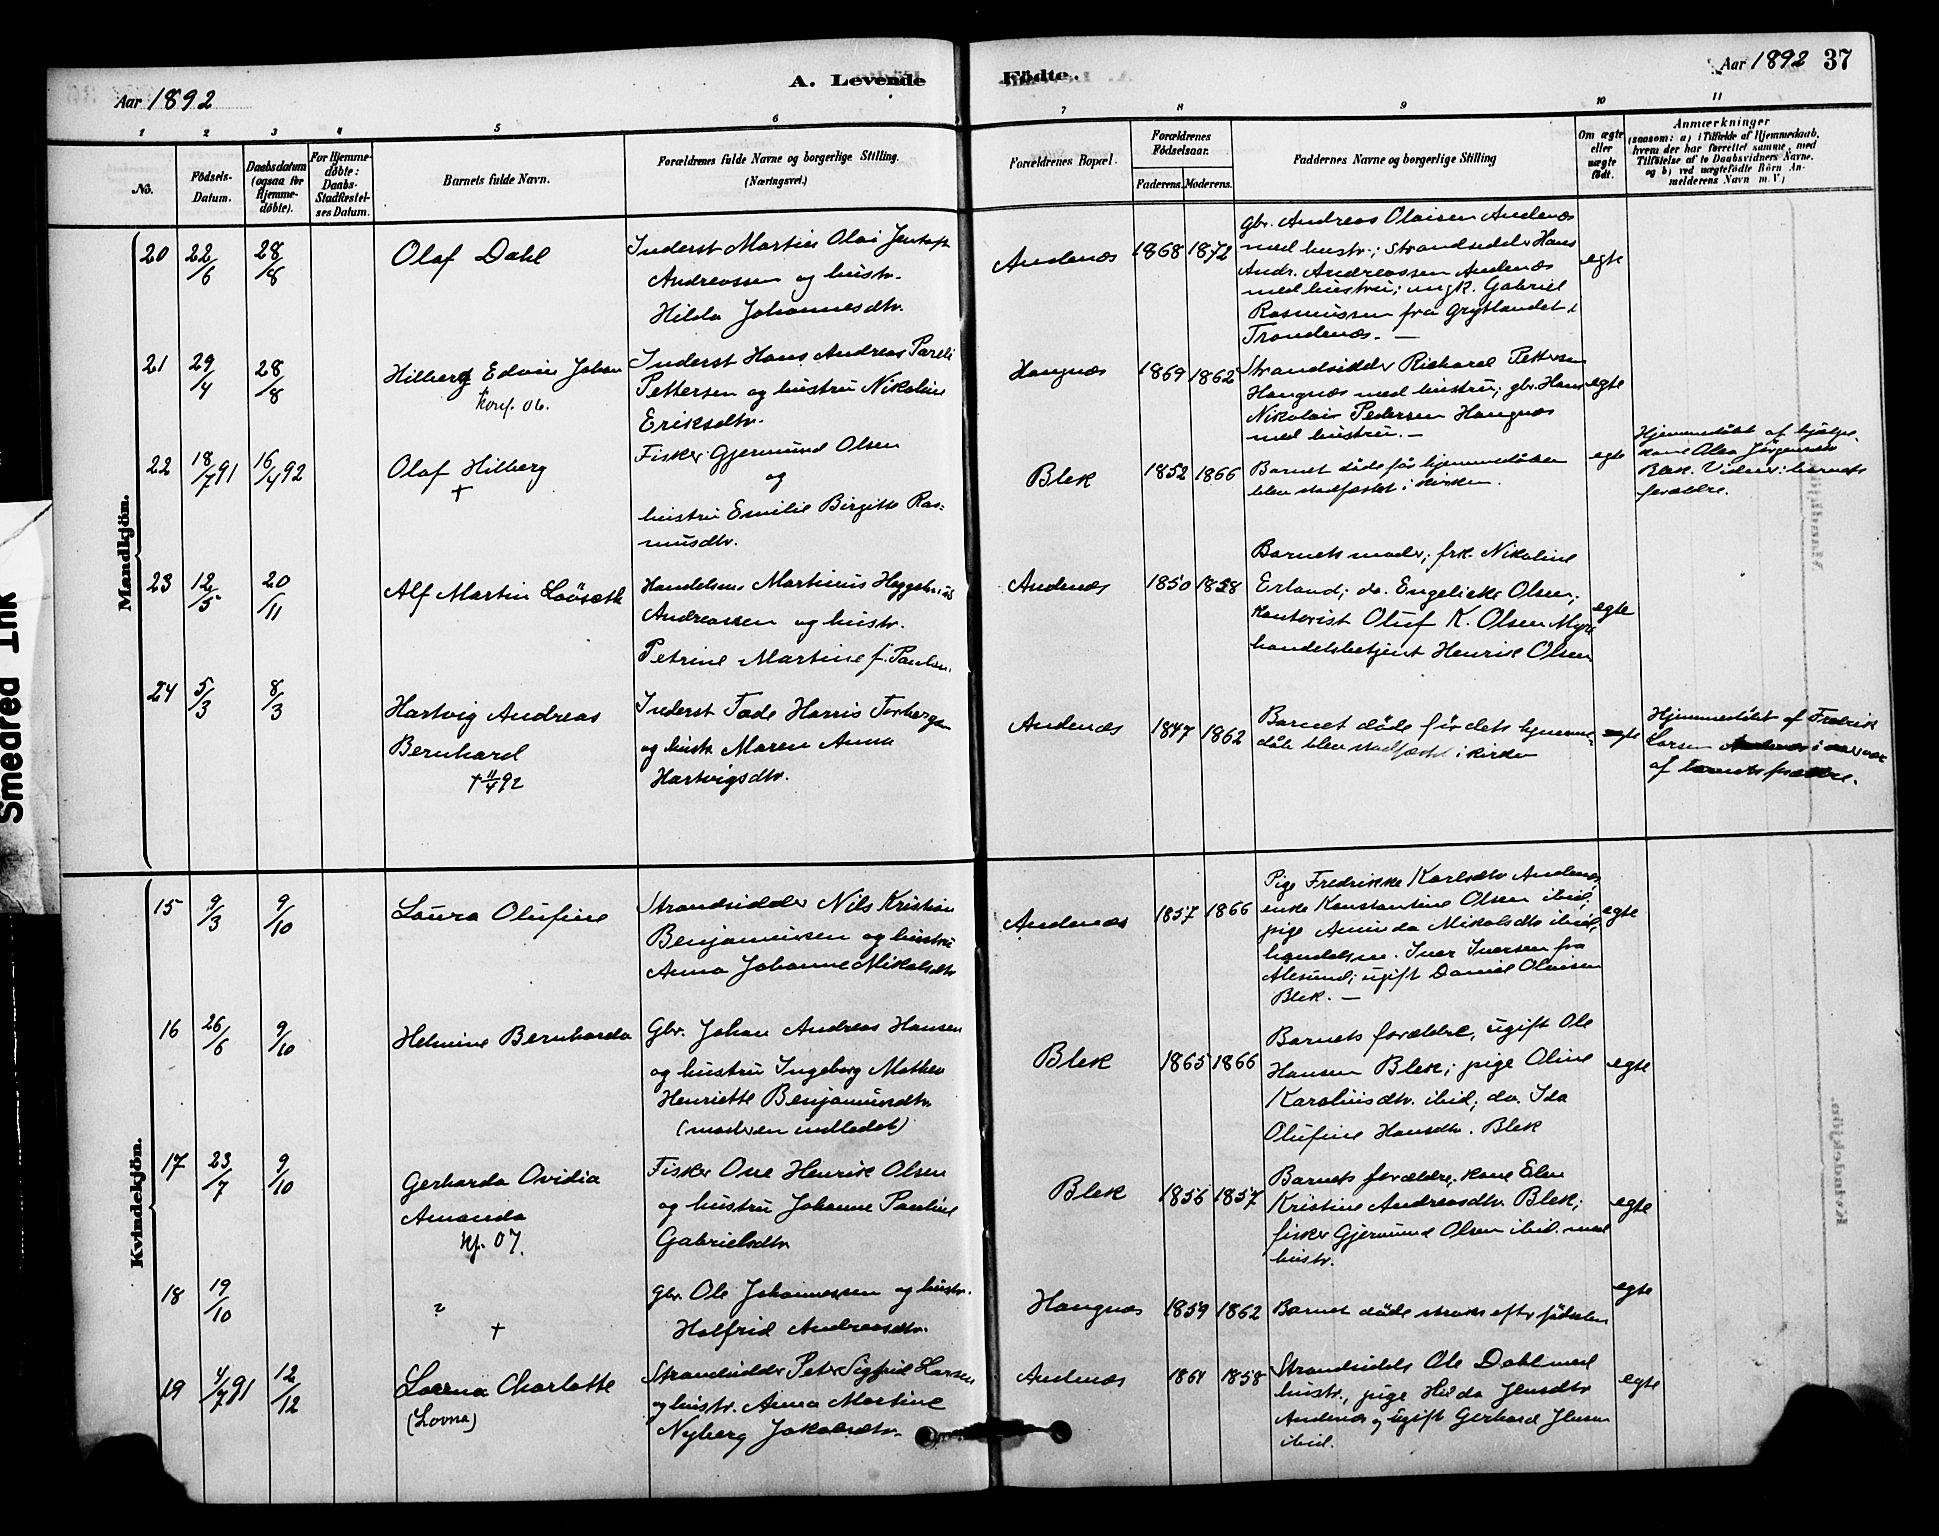 Aar 1892
A. Levende
Födte.
Aar 1892 37
1 2 3 4 5 6 7 8 9 10 11
No.
Födsels-
Datum.
Daabsdatum
(ogsaa for
Hjemme-
döbte).
For Hjemme-
döbte:
Daabs-
Stadfæstel-
ses Datum.
Barnets fulde Navn.
Forældrenes fulde Navne og borgerlige Stilling.
(Næringsvei.)
Forældrenes Bopæl.
Forældrenes
Födselsaar.
Faderens. Moderens.
Faddernes Navne og borgerlige Stilling
Om ægte
eller
uægte
født.
Anmærkninger
(saasom: a) i Tilfælde af Hjemmedaab,
hvem der har forrettet samme, med
Tilföielse af to Daabsvidners Navne.
og b) ved uægtefödte Börn An-
melderens Navn m. V.)
Mandkjön.
20 22/6 28/8
Olaf Dahl
Inderst Martin Olai Jentoft
Andreassen og hustr.
Hilda Johannesdtr.
Andenæs 1868 1872
gbr. Andreas Olaisen Andenæs
med hustr.; strandsidder Hans
Andr. Andreassen Andenæs
med hustru; ungk. Gabriel
Rasmussen fra Grytlandet i
Trondenæs. —
egte
21 29/4 28/8
Hilberg Edvin Johan
konf. 06.
Inderst Hans Andreas Pareli
Pettersen og hustru Nikoline
Eriksdtr.
Haugnæs 1869 1862
Strandsidder Richard Pettersen
Haugnæs med hustru; gbr. Hans
Nikolai Pedersen Haugnæs
med hustru. —
egte
22 18/7 91 16/4 92
Olaf Hilberg
†
Fisker Gjermund Olsen
og
hustru Emilie Birgitte Ras-
musdtr.
Blek 1852 1866
Barnet døde før hjemmedåben
blev stadfæstet i kirken.
egte
Hjemmedøbt af hjælpe-
kone Olea Jørgensen
Blek. Vidner: barnets
forældre.
23 12/5 20/11
Alf Martin Løvseth
Handelsm. Martinus Heggelund
Andreassen og hustr.
Petrine Martine f. Paulsen.
Andenæs 1850 1858
Barnets moder; frk. Nikoline
Erland; do. Engelicke Olsen;
kontorist Oluf K. Olsen Myre
handelsbetjent Henrik Olsen
egte
24 5/3 8/3
Hartvig Andreas
Bernhard
† 11/4 92
Inderst Tode Harris Torbergsen
og hustr. Maren Anna
Hartvigsdtr.
Andenæs 1847 1862
Barnet døde før dets hjemme-
dåb blev stadfæstet i kirken
egte
Hjemmedøbt af Fredrik
Larsen Andenæs i nærvær
af barnets forældre.
Kvindekjön.
15 9/3 9/10
Laura Olufine
Strandsidder Nils Kristian
Benjaminsen og hustru
Anna Johanne Mikalsdtr
Andenæs 1857 1866
Pige Fredrikke Karlsdtr Andenæs,
enke Konstantine Olsen ibid;
pige Aminda Mikalsdtr ibid;
handelsm. Iver Iversen fra
Ålesund; ugift Daniel Olaisen
Blek. —
egte
16 26/6 9/10
Helmine Bernharda
Gbr. Johan Andreas Hansen
og hustru Ingeborg Mathea
Henriette Benjaminsdtr.
(moderen indledet)
Blek 1865 1866
Barnets forældre, ugift Ole
Hansen Blek; pige Oline
Karolinsdtr. ibid; do. Ida
Olufine Hansdtr. Blek
egte
17 23/7 9/10
Gerharda Ovidia
Amanda
kf. 07.
Fisker Ove Henrik Olsen
og hustru Johanne Pauline
Gabrielsdtr
Blek 1856 1857
Barnets forældre, kone Elen
Kristine Andreasdtr. Blek;
fisker Gjermund Olsen ibid. med
hustr.
egte
18 19/10
†
gbr. Ole Johannessen og hustr.
Halfrid Andreasdtr.
Haugnæs 1859 1862
Barnet døde straks efter fødselen
egte
19 4/7 91 12/12
Lovna Charlotte
(Lovna)
Strandsidder Peter Sigfrid Larsen
og hustr. Anna Martine
Nyberg Jakobsdtr.
Andenæs 1864 1858
Strandsidder Ole Dahl med
hustr., pige Hilda Jensdtr
Andenæs og ugift Gerhard Jensen
ibid.
egte
Smedred Ink